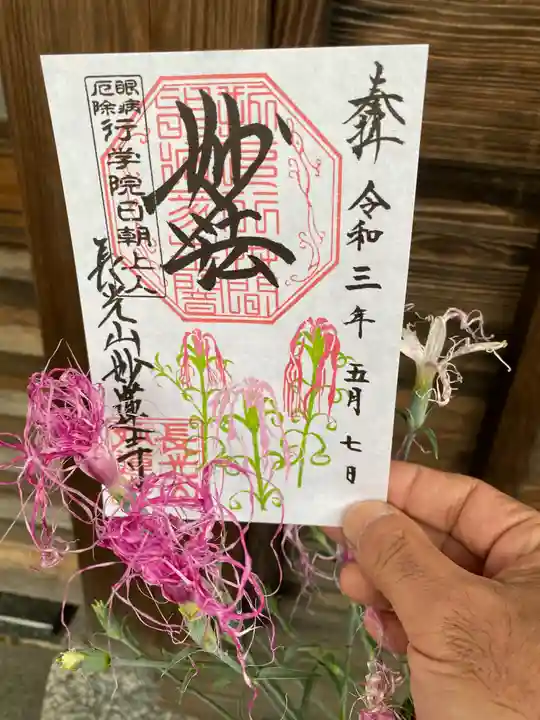 奉拝
令和三年五月七日
妙法
眼病
厄除
行学院日朝上人
長光山妙蓮寺